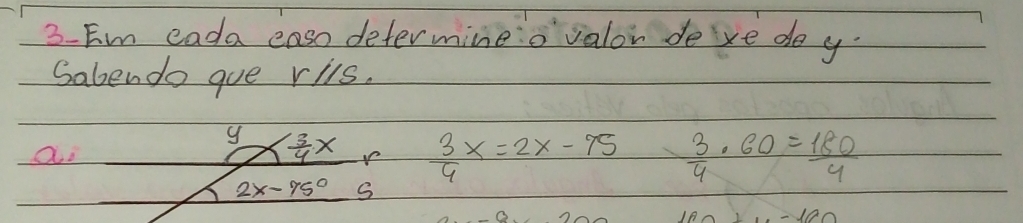 3-Em cada caso determine o valor de x e de y.
Sabendo que r//s.
a. y 3/4 x r 3/4 x = 2x - 75 3/4 . 60 = 180/4
2x-75° s